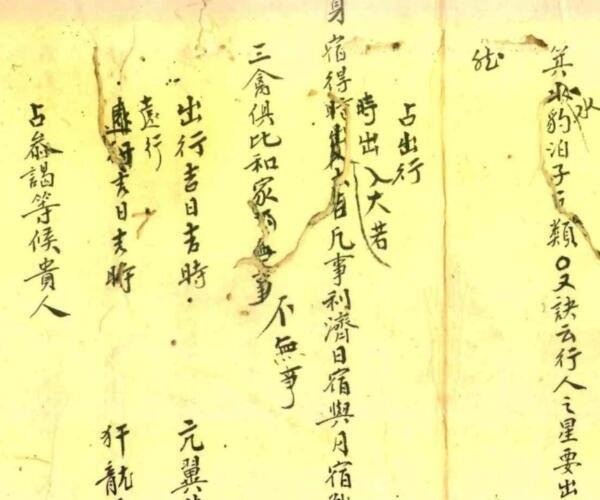 箕水豹泊子下類〇又訣云行人之星要出
水
能
占出行
時出入大若
身宿得時 凡事利濟日宿與月宿
三禽俱比和家 無事
不無事
出行吉日吉時 亢翼
遠行
吉日吉時 犴龍
占叅謁等候貴人